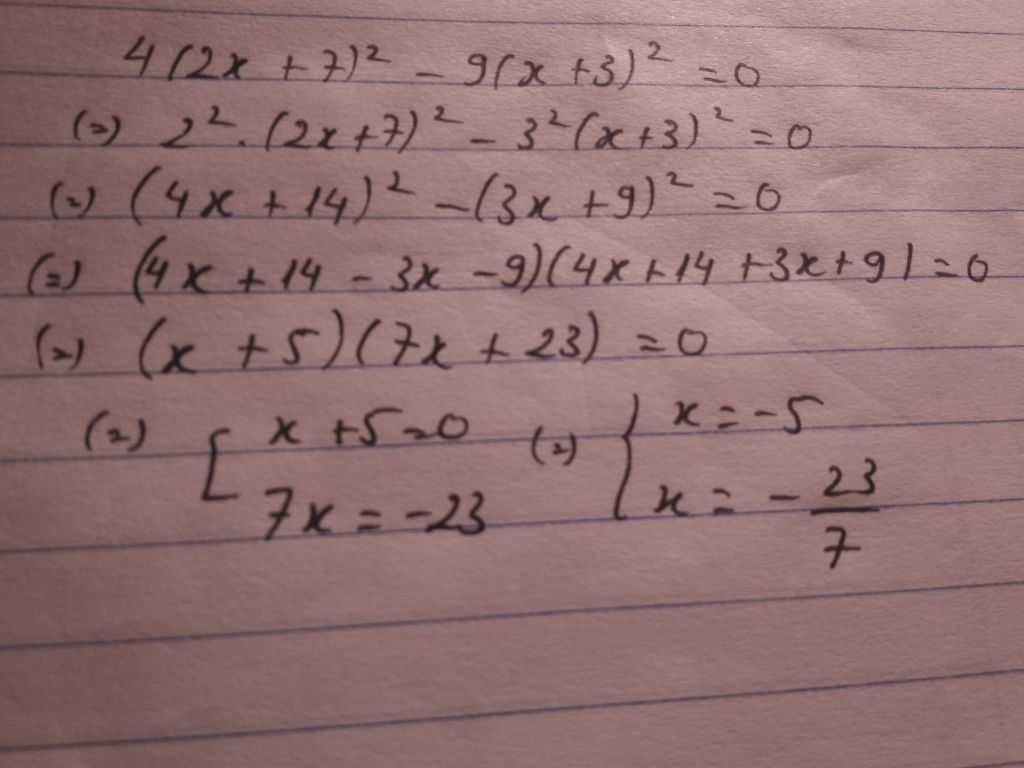 4(2x + 7)² - 9(x + 3)² = 0
(=) 2² . (2x + 7)² - 3² (x + 3)² = 0
(=) (4x + 14)² - (3x + 9)² = 0
(=) (4x + 14 - 3x - 9)(4x + 14 + 3x + 9) = 0
(=) (x + 5)(7x + 23) = 0
(=) [ x + 5 = 0 (=) { x = -5
7x = -23 x = - 23/7